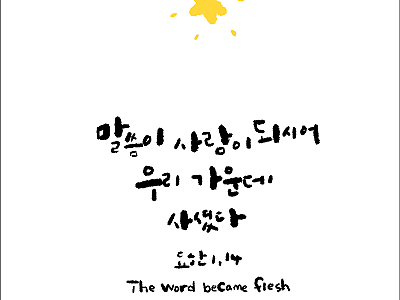 말씀이 사랑이 되시어
우리 가운데
사셨다
요한 1,14
The word became flesh